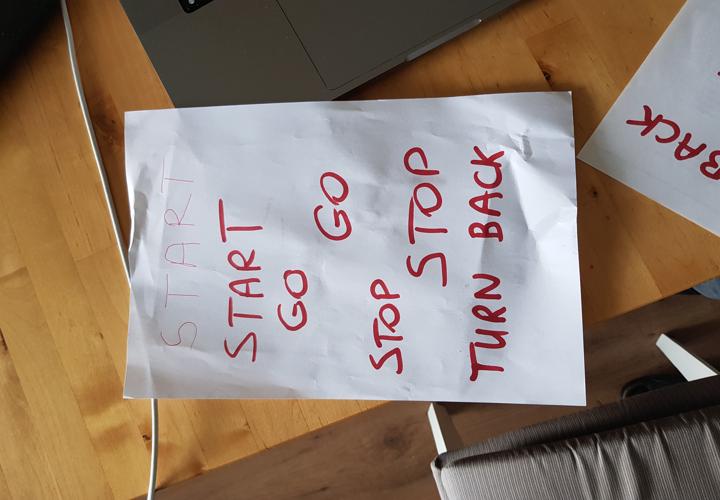 START
START
GO
GO
STOP
STOP
TURN BACK
BACK